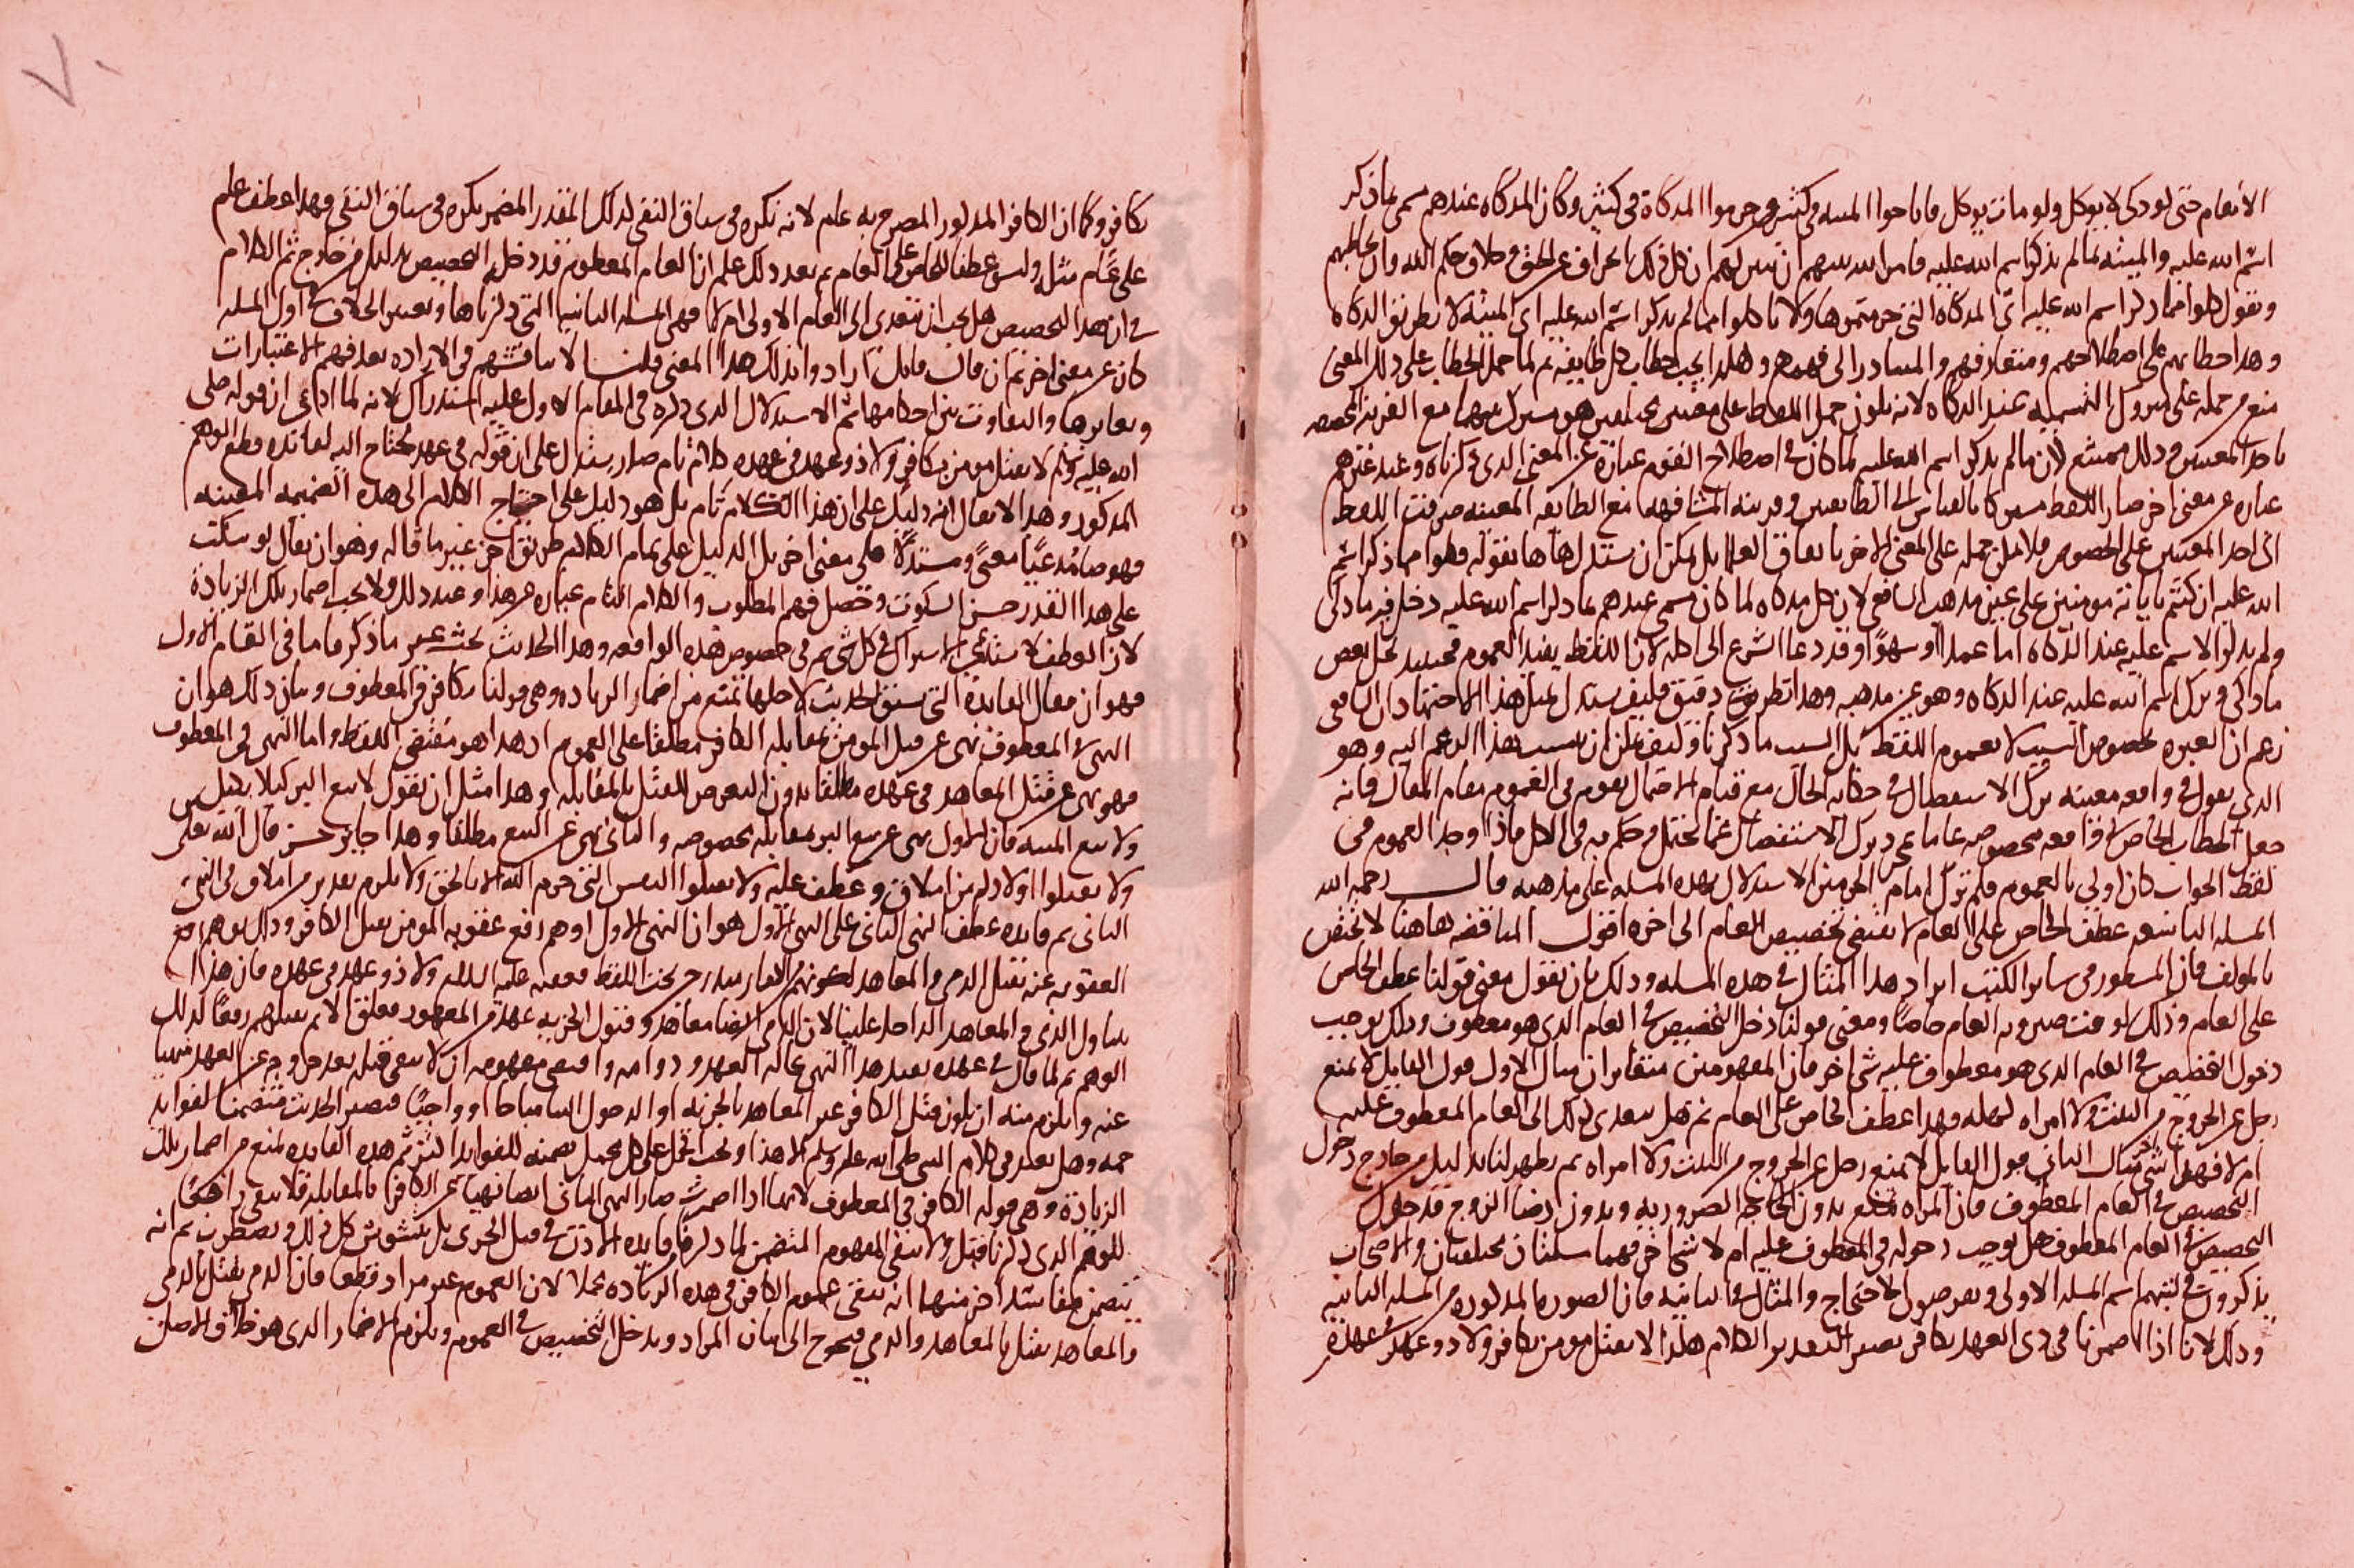 الانعام حتى لو ذكى لا يوكل ولو ماتت يوكل فاباحوا الميتة في كثير وحرموا المذكاة في كثير وكان المذكاة عندهم سمى بما ذكر
اسم الله عليه والميتة بما لم يذكر اسم الله عليه فامر الله نبيهم ان يبين لهم ان كل ذلك انحراف عن الحق وخلاف حكم الله وان يخاطبهم
ويقول كلوا مما ذكر اسم الله عليه اي المذكاة التي حرمتموها ولا تاكلوا مما لم يذكر اسم الله عليه اي الميتة لا بطريق الذكاة
وهذا خطابهم على اصطلاحهم ومتعارفهم والمتبادر الى فهمهم وهكذا يجب خطاب كل طايفة ثم لما حمل الخطاب على ذلك المعنى
منع من حمله على متروك التسمية عند الذكاة لانه يكون حمل اللفظ على معنيين مختلفين هو مشترك بينهما مع القرينة المخصصة
باحد المعنيين وذلك ممتنع لان ما لم يذكر اسم الله عليه لما كان في اصطلاح القوم عبارة عن المعنى الذي ذكرناه وعند غيرهم
عبارة عن معنى اخر صار اللفظ مشتركا بالقياس الى الطايفتين وقرينة المشافهة مع الطايفة المعينة صرفت اللفظ
الى احد المعنيين على الخصوص فلا يمكن حمله على المعنى الاخر باتفاق العلما بل يمكن ان يستدل هاهنا بقوله فكلوا مما ذكر اسم
الله عليه ان كنتم باياته مومنين على عين مذهب الشافعي لان كل مذكاة لما كان سمى عندهم بما ذكر اسم الله عليه دخل فيه ما ذكي
ولم يذكر الاسم عليه عند الذكاة اما عمدا او سهوا وقد دعا الشرع الى اكله لان اللفظ يفيد العموم فحينيذ يحل بعض
ما ذكي وترك اسم الله عليه عند الذكاة وهو عين مذهبه وهذا نظر دقيق فكيف يستدل لمثل هذا الاجتهاد ان الشافعي
زعم ان العبرة بخصوص السبب لا بعموم اللفظ بل السبب ما ذكرنا وكيف يمكن ان ينسب هذا الزعم اليه وهو
الذي يقول في واقعة معينة ترك الاستفصال في حكاية الحال مع قيام الاحتمال يقوم في العموم مقام المقال فانه
جعل الخطاب الخاص في واقعة مخصوصة عاما بمجرد ترك الاستفصال عما يحتمل وحكم به في الكل فاذا وجد العموم في
لفظ الجواب كان اولى بالعموم فلم ترك امام الحرمين الاستدلال بهذه المسلة على مذهبه قال رحمه الله
المسلة التاسعة عطف الخاص على العام لا يقتضي تخصيص العام الى اخره اقول المناقضة هاهنا لا تختص
بالمولف فان المسطور في ساير الكتب ايراد هذا المثال في هذه المسلة وذلك بان نقول معنى قولنا عطف الخاص
على العام وذلك لو قت صيرورة العام خاصا ومعنى قولنا دخل التخصيص في العام الذي هو معطوف وذلك يوجب
دخول التخصيص في العام الذي هو معطوف عليه شي اخر فان المفهومين متغايران مثال الاول قول القايل لا يمنع
رجل عن الخروج من البيت ولا امراة كهلة فهذا عطف الخاص على العام ثم هل يتعدى ذلك الى العام المعطوف عليه
ام لا فهذا شي اخر مثال الثاني قول القايل لا يمنع رجل عن الخروج من البيت ولا امراة ثم يظهر لنا بدليل من خارج دخول
التخصيص في العام المعطوف فان المراة تمنع بدون الحاجة الضرورية وبدون رضا الزوج فدخول
التخصيص في العام المعطوف هل يوجب دخوله في المعطوف عليه ام لا شي اخر فهما مسلتان مختلفتان والاصحاب
يذكرون في كتبهم اسم المسلة الاولى وصورة الاحتجاج والمثال في الثانية فان الصورة المذكورة من المسلة الثانية
وذلك لانا اذا اضمرنا في ذي العهد بكافر يصير التقدير الكلام هكذا لا يقتل مومن بكافر ولا ذو عهد في عهده
بكافر وكما ان الكافر المذكور المصرح به عام لانه نكرة في سياق النفي لذلك المقدر المضمر نكرة في سياق النفي فهذا عطف عام
على عام مثله وليس عطفا للخاص على العام ثم بعد ذلك علم ان العام المعطوف قد دخله التخصيص بدليل من خارج ثم الكلام
في ان هذا التخصيص هل يجب ان يتعدى الى العام الاولى ام لا فهي المسلة الثانية التي ذكرناها وتعيين الخلاف في اول المسلة
كان عن معنى اخر ثم ان قال قايل ارادوا بذلك هذا المعنى قلنا لا مناقشة معهم في الارادة بعد فهم الاعتبارات
وتغايرها والتفاوت بين احكامها ثم الاستدلال الذي ذكره في المقام الاول عليه استدراك لانه لما ادعى ان قوله صلى
الله عليه وسلم لا يقتل مومن بكافر ولا ذو عهد في عهده كلام تام صار يستدل على ان قوله في عهده يحتاج اليه لفايدة قطع الوهم
المذكور وهذا لا يقال انه دليل على ان هذا الكلام تام بل هو دليل على احتياج الكلام الى هذه الضميمة المعينة
فهو صار مدعيا معنى ومستدلا على معنى اخر بل الدليل على تمام الكلام طريق اخر غير ما قاله وهو ان يقال لو سكت
على هذا القدر حسن السكوت وحصل فهم المطلوب والكلام التام عبارة عن هذا وعند ذلك فلا يجب اضمار تلك الزيادة
لان العطف لا يستدعي الاشتراك في كل شي ثم في خصوص هذه الواقعة وهذا الحديث بحث غير ما ذكر فاما في المقام الاول
فهو ان يقال الفايدة التي سيق الحديث لاجلها تمنع من اضمار الزيادة وهي قولنا بكافر في المعطوف وبيان ذلك هو ان
النهي في المعطوف نهي عن قتل المومن بمقابلة الكافر مطلقا على العموم اذ هذا هو مقتضى اللفظ واما النهي في المعطوف
فهو نهي عن قتل المعاهد في عهده مطلقا بدون التعرض للقتل بالمقابلة وهذا مثل ان نقول لا تبع البر كيلا بكيل
ولا تبع الميتة فان الاول نهي عن بيع البر بمقابلة بخصوصه والثاني نهي عن البيع مطلقا وهذا جايز حسن قال الله تعالى
ولا تقتلوا اولادكم من املاق وعطف عليه ولا تقتلوا النفس التي حرم الله الا بالحق ولا يلزم تقدير من املاق في النهي
الثاني ثم فايدة عطف النهي الثاني على النهي الاول هو ان النهي الاول اوهم رفع عقوبة المومن بقتل الكافر وذلك يوهم رفع
العقوبة عنه بقتل الذمي والمعاهد لكونهم كفار مندرج تحت اللفظ فعقبه عليه السلام ولا ذو عهد في عهده فان هذا
يتناول الذمي والمعاهد الداخل علينا لان الذمي ايضا معاهد وقبول الجزية عهدة من العهود فعلق الاثم بقتلهم رفعا لذلك
الوهم ثم لما قال في عهده تقيد هذا النهي بحالة العهد ودوامه واقتضى مفهومه ان لا يبقى قتله بعد خروجه عن العهد منهيا
عنه ويلزم منه ان يكون قتل الكافر غير المعاهد بالجزية او الدخول الينا مباحا او واجبا فيصير الحديث متضمنا لفوايد
جمة وهل يعتبر في كلام النبي صلى الله عليه وسلم الا هذا ويجب الحمل على كل محمل يضمنه للفوايد اكثر ثم هذه الفايدة تمنع من اضمار تلك
الزيادة وهي قوله الكافر في المعطوف لانها اذا اضمرت صار النهي الثاني ايضا نهيا عن الكافر بالمقابلة فلا يبقى رافعا
للوهم الذي ذكرنا قبل ولا يبقى المفهوم المتضمن لما ذكرنا فايدة الاذن في قتل الحربي بل يتشوش كل ذلك ويضطرب ثم انه
يتضمن مفاسد اخر منها انه يبقى عموم الكافر في هذه الزيادة مجملا لان العموم غير مراد قطعا فان الذمي يقتل بالذمي
والمعاهد يقتل بالمعاهد والذمي فيحوج الى بيان المراد ويدخل التخصيص في العموم ويلزم الاضمار الذي هو خلاف الاصل